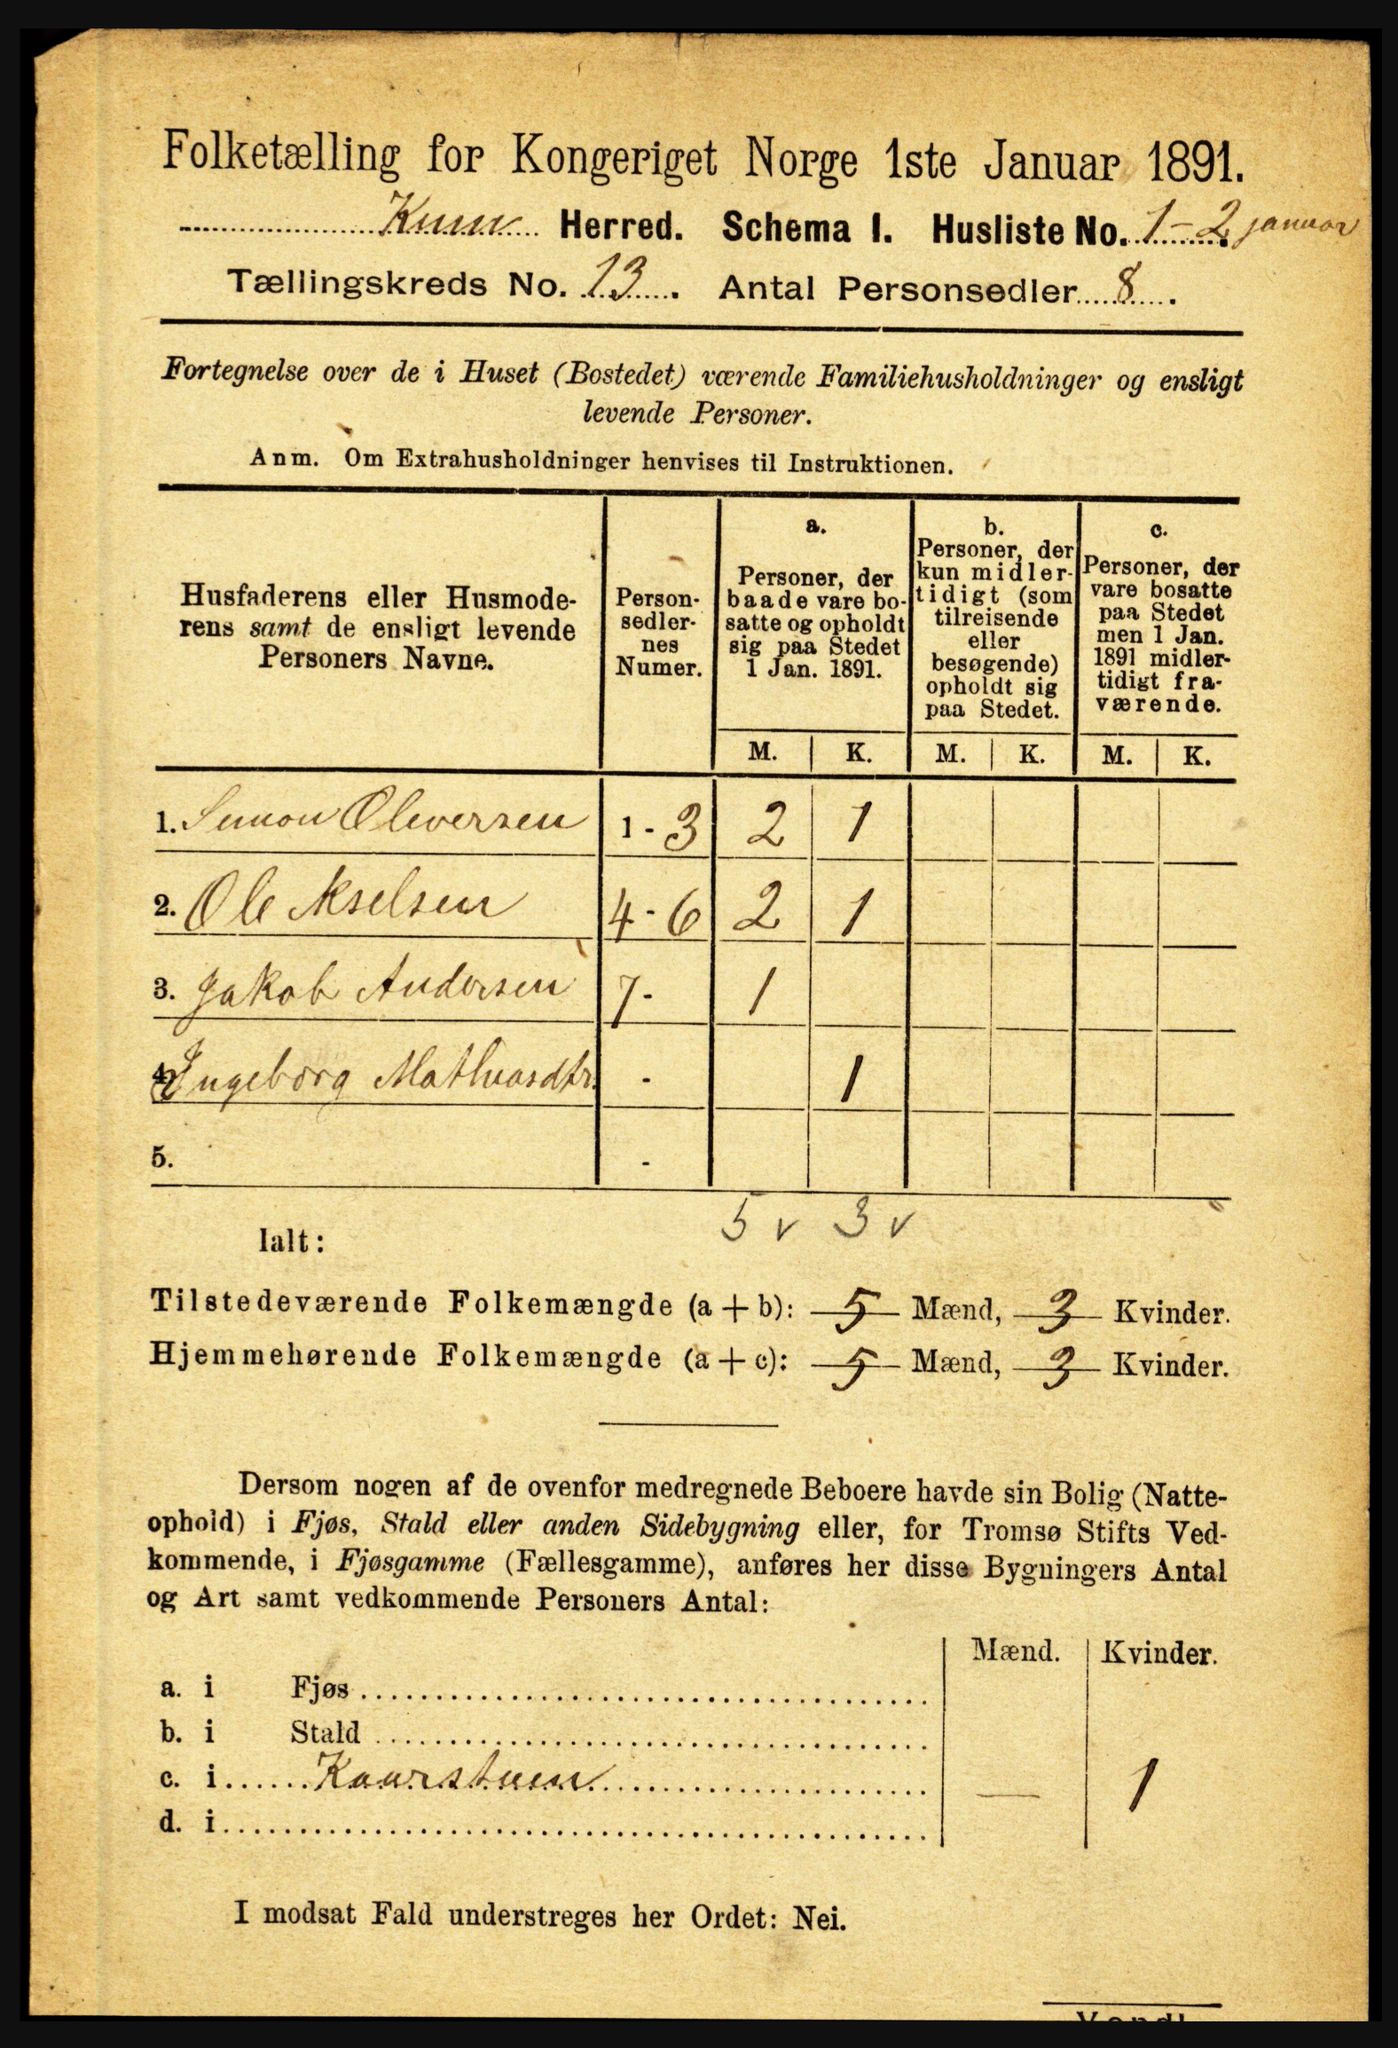 Folketælling for Kongeriget Norge 1ste Januar 1891.
Kinn Herred. Schema I. Husliste No. 1-2 januar
Tællingskreds No. 13. Antal Personsedler 8.
Fortegnelse over de i Huset (Bostedet) værende Familiehusholdninger og ensligt
levende Personer.
Anm. Om Extrahusholdninger henvises til Instruktionen.
Husfaderens eller Husmode-
rens samt de ensligt levende
Personers Navne.
Person-
sedler-
nes
Numer.
a.
Personer, der
baade vare bo-
satte og opholdt
sig paa Stedet
1 Jan. 1891.
b.
Personer, der
kun midler-
tidigt (som
tilreisende
eller
besøgende)
opholdt sig
paa Stedet.
c.
Personer, der
vare bosatte
paa Stedet
men 1 Jan.
1891 midler-
tidigt fra-
værende.
M. K. M. K. M. K.
1. Simon Oliversen 1 - 3 2 1
2. Ole Akselsen 4 - 6 2 1
3. Jakob Andersen 7 - 1
4. Ingeborg Mathiasdtr. - 1
5. -
5 v 3 v
Ialt:
Tilstedeværende Folkemængde (a + b): 5 Mænd, 3 Kvinder.
Hjemmehørende Folkemængde (a + c): 5 Mænd, 3 Kvinder.
Dersom nogen af de ovenfor medregnede Beboere havde sin Bolig (Natte-
ophold) i Fjøs, Stald eller anden Sidebygning eller, for Tromsø Stifts Ved-
kommende, i Fjøsgamme (Fællesgamme), anføres her disse Bygningers Antal
og Art samt vedkommende Personers Antal:
Mænd. Kvinder.
a. i Fjøs
b. i Stald
c. i Kaarstuen — 1
d. i
I modsat Fald understreges her Ordet: Nei.
Vend!